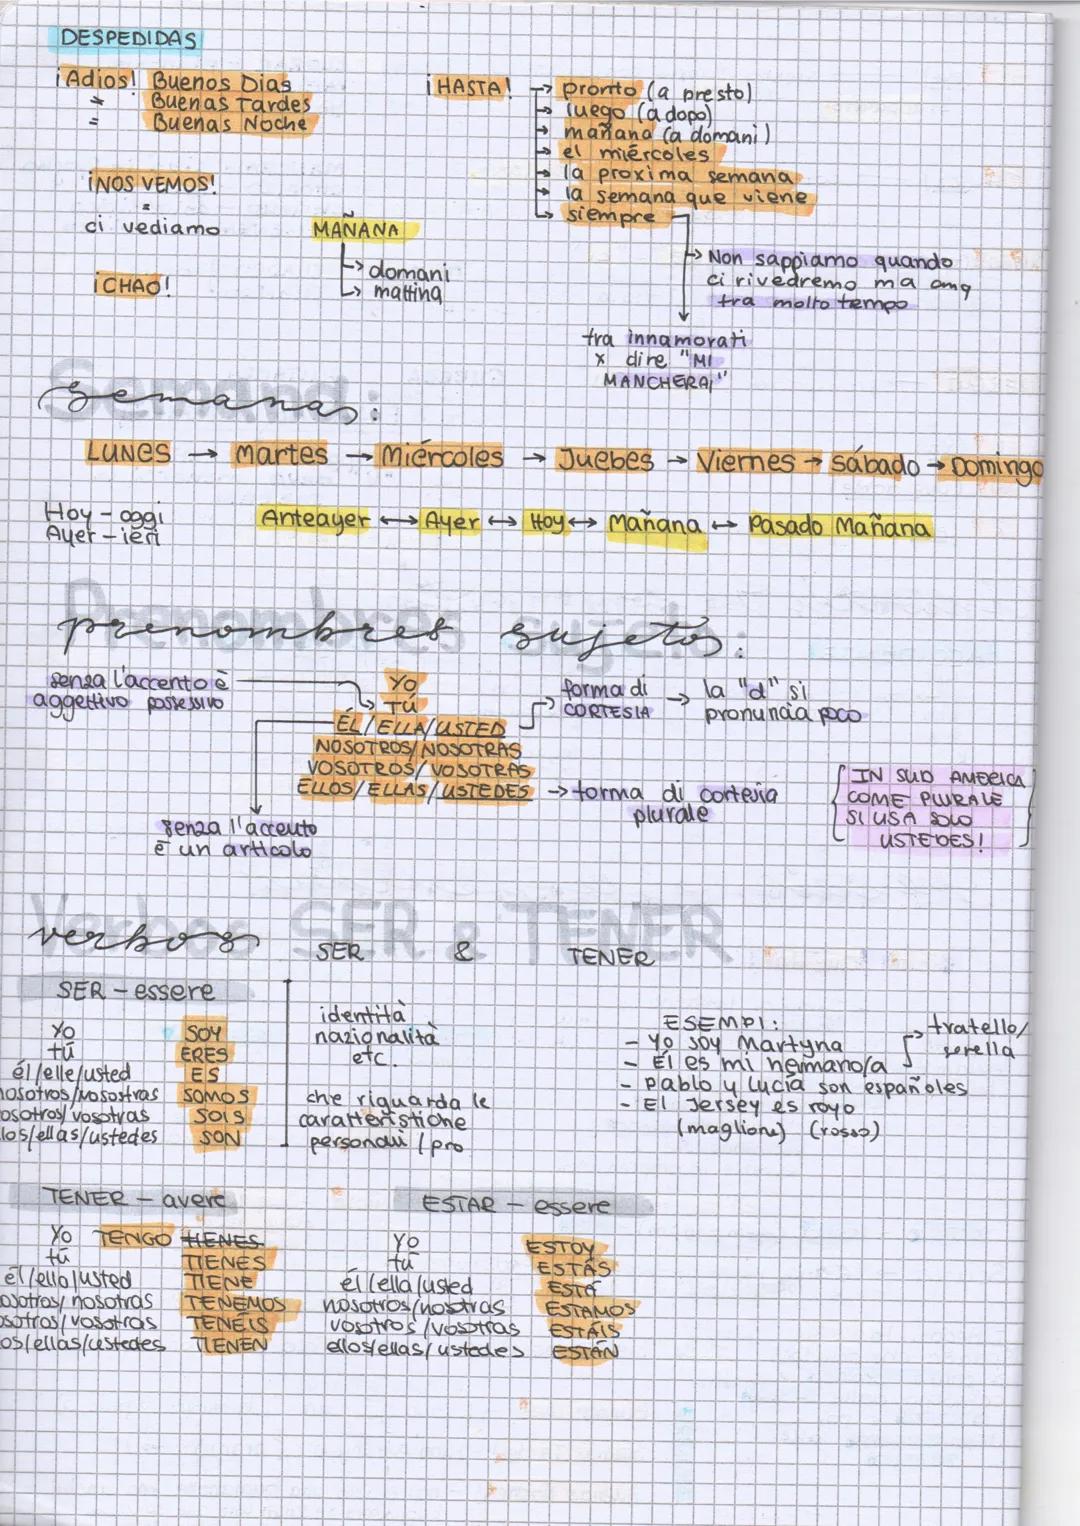 DESPEDIDAS
¡Adios! Buenos Dias
Buenas Tardes
= Buenas Noche
¡HASTA! → pronto (a presto)
→ luego (a dopo)
→ mañana (a domani)
→ el miércoles
→ la proxima semana
→ la semana que viene
→ siempre
¡NOS VEMOS!
=
ci vediamo
¡CHAO!
MAÑANA
→ domani
→ mattina
→ Non sappiamo quando
ci rivedremo ma
tra molto tempo
tra innamorati
x dire "MI
MANCHERAI"
Semana:
LUNES → Martes → Miércoles → Juebes → Viernes → Sábado → Domingo
Hoy - oggi
Ayer - ieri
Anteayer ↔ Ayer ↔ Hoy ↔ Mañana ↔ Pasado Mañana
prenombres sujetos:
senza l'accento è
aggettivo possessivo
YO
TÚ
ÉL/ELLA/USTED
NOSOTROS/NOSOTRAS
VOSOTROS/VOSOTRAS
ELLOS/ELLAS/USTEDES → forma di cortesia
plurale
forma di
CORTESIA
→ la "d" si
pronuncia poco
senza l'accento
è un articolo
IN SUD AMERICA
COME PLURALE
SI USA SOLO
USTEDES!
verbos SER & TENER
SER - essere
Yo SOY
tú ERES
él/elle/usted ES
nosotros/nosostras SOMOS
osotros/vosotras SOIS
los/ellas/ustedes SON
identità
nazionalità
etc.
che riguarda le
caratteristiche
personali / pro
ESEMPI:
- Yo soy Martyna
- Él es mi hermano/a
- Pablo y Lucía son españoles
- El Jersey es royo
(maglione) (rosso)
fratello/
sorella
TENER - avere
Yo TENGO TIENES
tú TIENES
él/ella/usted TIENE
osotros/nosotras TENEMOS
osotros/vosotras TENÉIS
os/ellas/ustedes TIENEN
ESTAR - essere
YO ESTOY
tú ESTÁS
él/ella/usted ESTÁ
nosotros/nosotras ESTAMOS
vosotros/vosotras ESTÁIS
ellos/ellas/ustedes ESTÁN